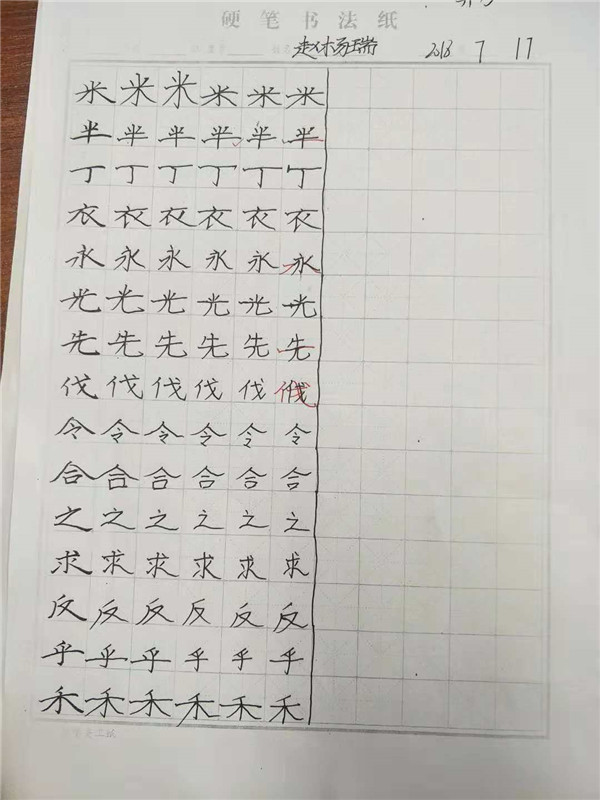 硬笔书法纸
2018 7 17
米米米米米米
半半半半半半
丁丁丁丁丁丁
衣衣衣衣衣衣
永永永永永永
光光光光光光
先先先先先先
伐伐伐伐伐伐
令令令令令令
合合合合合合
之之之之之之
求求求求求求
反反反反反反
乎乎乎乎乎乎
禾禾禾禾禾禾